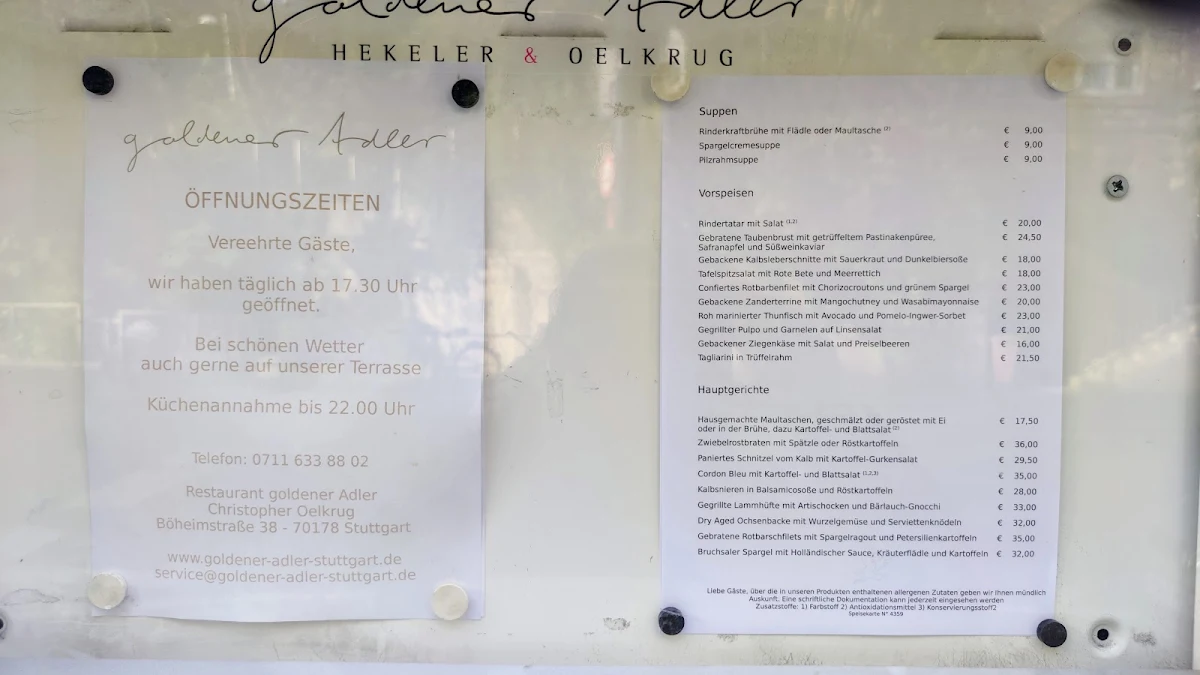 goldener Adler
HEKELER & OELKRUG
goldener Adler
ÖFFNUNGSZEITEN
Vereehrte Gäste,
wir haben täglich ab 17.30 Uhr
geöffnet.
Bei schönen Wetter
auch gerne auf unserer Terrasse
Küchenannahme bis 22.00 Uhr
Telefon: 0711 633 88 02
Restaurant goldener Adler
Christopher Oelkrug
Böheimstraße 38 - 70178 Stuttgart
www.goldener-adler-stuttgart.de
service@goldener-adler-stuttgart.de
Suppen
Rinderkraftbrühe mit Flädle oder Maultasche (2) € 9,00
Spargelcremesuppe € 9,00
Pilzrahmsuppe € 9,00
Vorspeisen
Rindertatar mit Salat (1,2) € 20,00
Gebratene Taubenbrust mit getrüffeltem Pastinakenpüree, € 24,50
Safranapfel und Süßweinkaviar
Gebackene Kalbsleberschnitte mit Sauerkraut und Dunkelbiersoße € 18,00
Tafelspitzsalat mit Rote Bete und Meerrettich € 18,00
Confiertes Rotbarbenfilet mit Chorizocroutons und grünem Spargel € 23,00
Gebackene Zanderterrine mit Mangochutney und Wasabimayonnaise € 20,00
Roh marinierter Thunfisch mit Avocado und Pomelo-Ingwer-Sorbet € 23,00
Gegrillter Pulpo und Garnelen auf Linsensalat € 21,00
Gebackener Ziegenkäse mit Salat und Preiselbeeren € 16,00
Tagliarini in Trüffelrahm € 21,50
Hauptgerichte
Hausgemachte Maultaschen, geschmälzt oder geröstet mit Ei € 17,50
oder in der Brühe, dazu Kartoffel- und Blattsalat (2)
Zwiebelrostbraten mit Spätzle oder Röstkartoffeln € 36,00
Paniertes Schnitzel vom Kalb mit Kartoffel-Gurkensalat € 29,50
Cordon Bleu mit Kartoffel- und Blattsalat (1,2,3) € 35,00
Kalbsnieren in Balsamicosoße und Röstkartoffeln € 28,00
Gegrillte Lammhüfte mit Artischocken und Bärlauch-Gnocchi € 33,00
Dry Aged Ochsenbacke mit Wurzelgemüse und Serviettenknödeln € 32,00
Gebratene Rotbarschfilets mit Spargelragout und Petersilienkartoffeln € 35,00
Bruchsaler Spargel mit Holländischer Sauce, Kräuterflädle und Kartoffeln € 32,00
Liebe Gäste, über die in unseren Produkten enthaltenen allergenen Zutaten geben wir Ihnen mündlich
Auskunft. Eine schriftliche Dokumentation kann jederzeit eingesehen werden
Zusatzstoffe: 1) Farbstoff 2) Antioxidationsmittel 3) Konservierungsstoff2
Speisekarte N° 4359